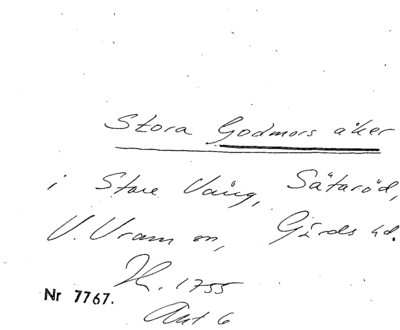 Stora Godmors åker
i Stora Vång, Sätaröd,
V. Vram sn, Gärds hd.
H. 1755
Nr 7767.
Akt 6